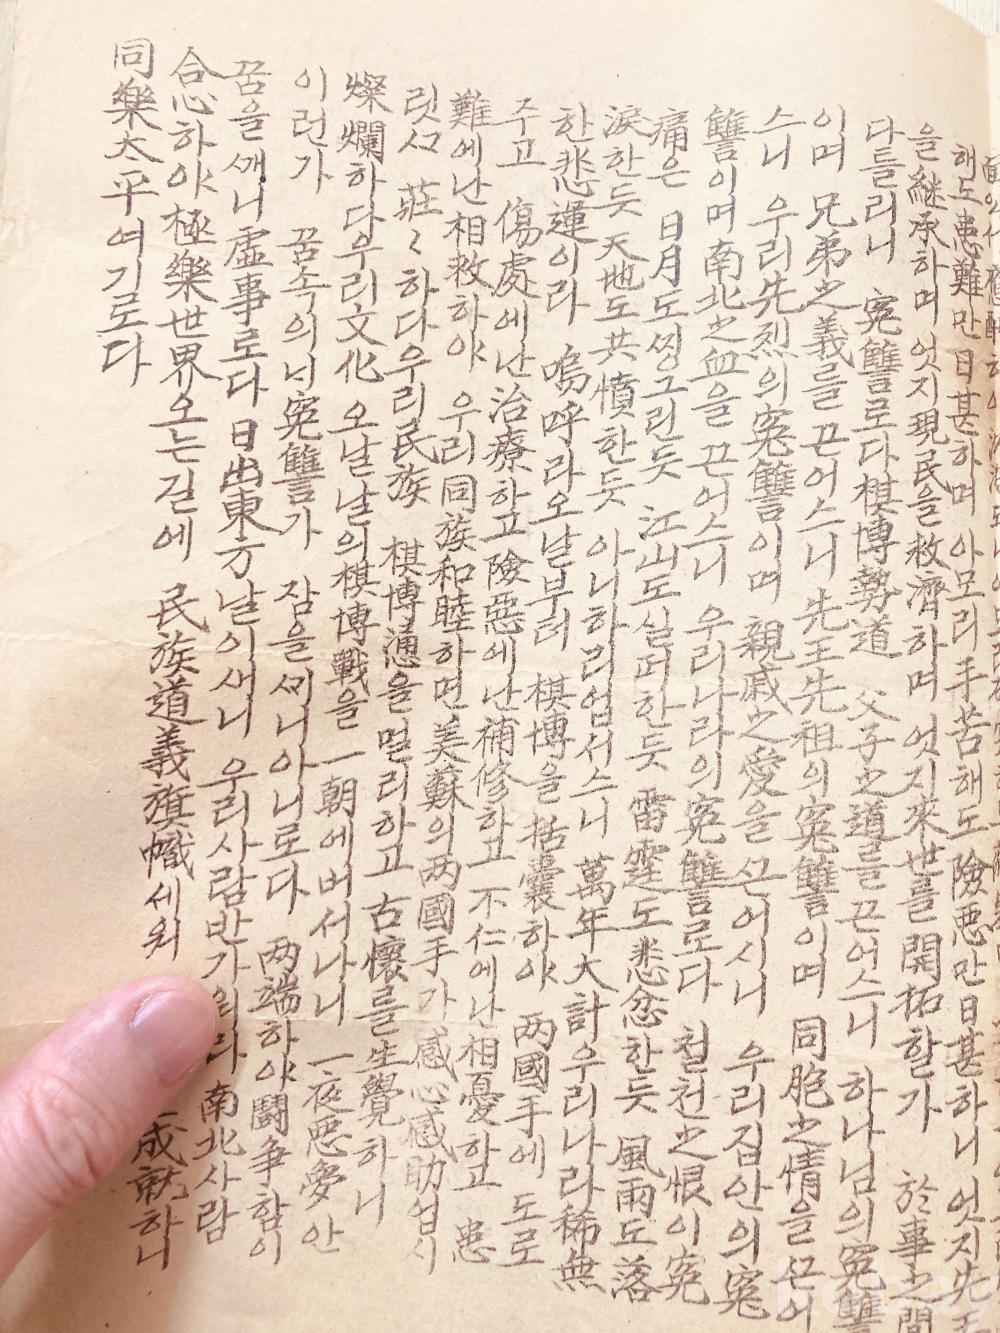 해도患難만日甚하며 아모리手苦해도險惡만日甚하니 엇지先王
을繼承하며엇지現民을救濟하며 엇지來世를開拓할가 於事之間
다들리니 寃讐로다棋博勢道 父子之道를끈어스니 하나님의寃讐
이며 兄弟之義를끈어스니先王先祖의寃讐이며 同胞之情을끈어
스니 우리先烈의寃讐이며 親戚之愛을끈어시니 우리집안의寃
讐이며南北之血을끈어스니 우리나라의寃讐로다 철천之恨이寃
痛은 日月도씽그린듯 江山도실퍼한듯 雷霆도悲忿한듯 風雨도落
淚한듯天地도共憤한듯 아니하리업서스니 萬年大計우리나라稀無
한悲運이라 嗚呼라오날부터 棋博을括囊하야 两國手에 도로
주고 傷處에난治療하고險惡에난補修하고不仁에난相憂하고 患
難에난相救하야 우리同族和睦하면美蘇의两國手가感心感助업시
릿스 莊〻하다우리民族 棋博懑을멀리하고 古懷를生覺하니
燦爛하다우리文化 오날날의棋博戰을一朝에버서나니 一夜惡夢안
이런가 꿈속의너寃讐가 잠을씨니아니로다 两端하야鬪争함이
꿈을깨니虛事로다 日出東方날이새니 우리사람반가워라南北사람
合心하야極樂世界오는길에 民族道義旗幟세워 成就하니
同樂太平여기로다